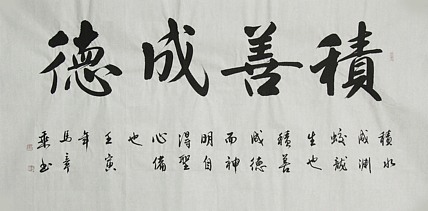 積善成德
積水
成渊
蛟龍
生也
積善
成德
而神
明自
得聖
心備
也
壬寅
年
馬
书